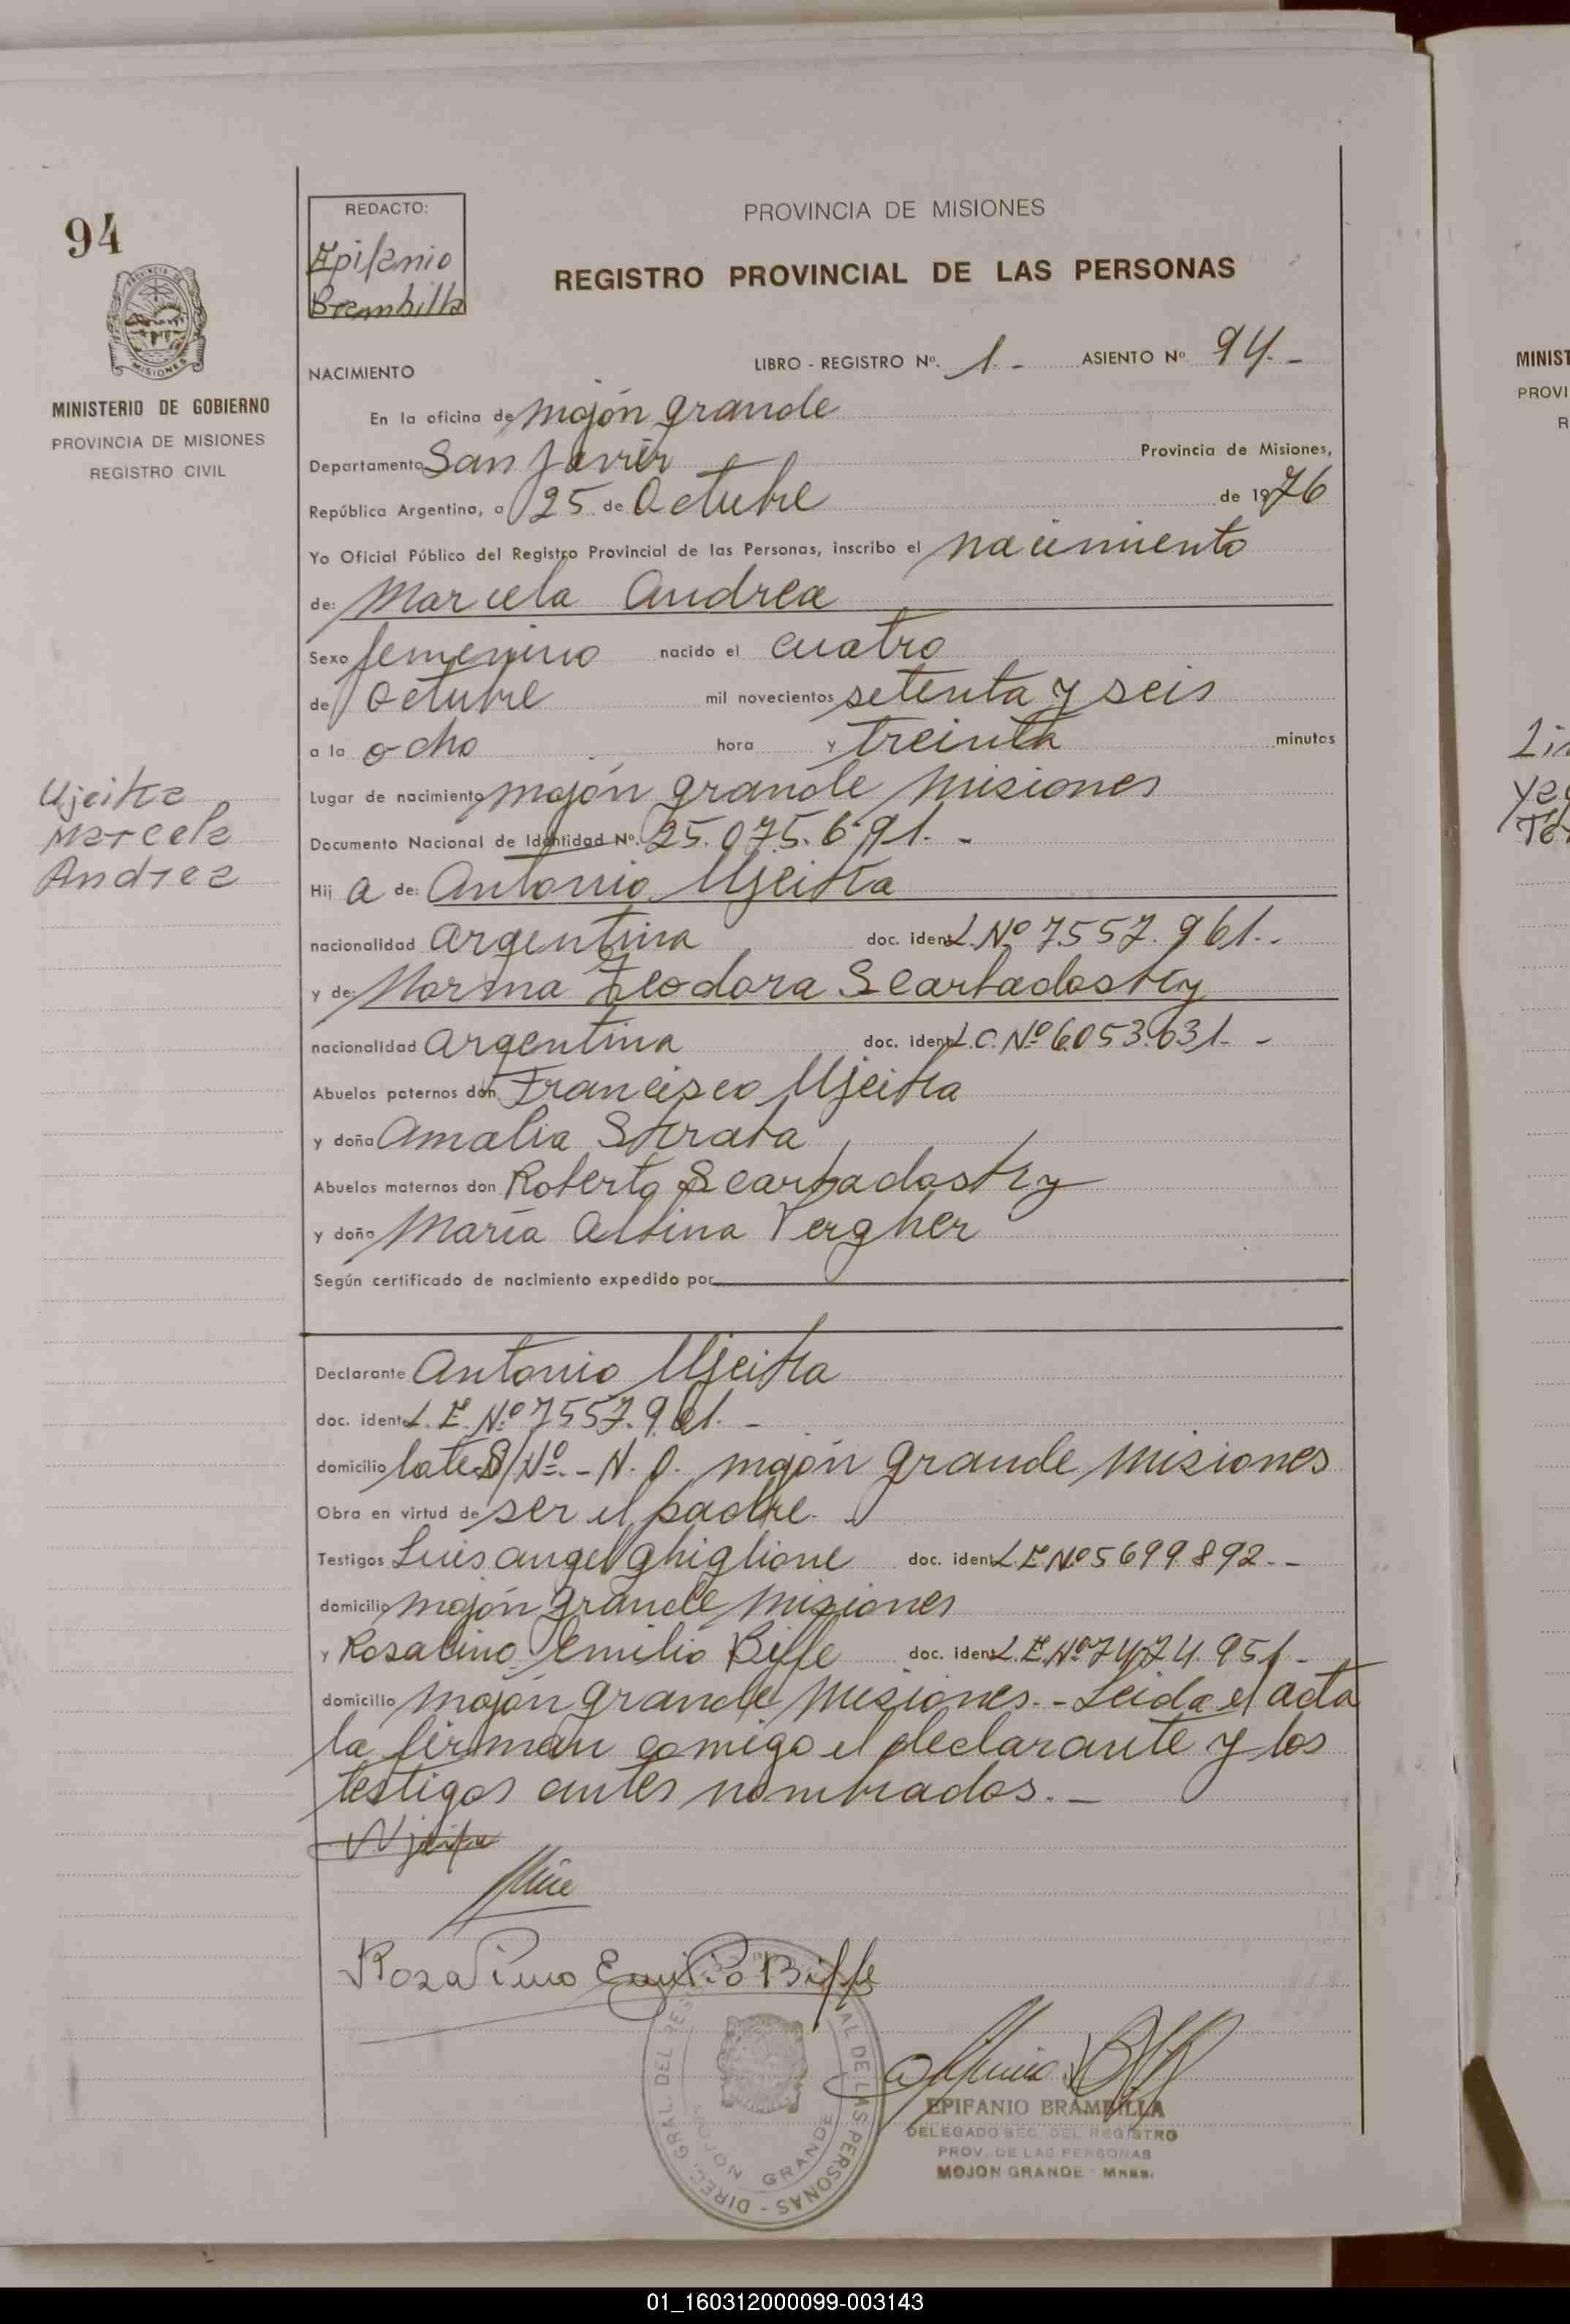 94
MINISTERIO DE GOBIERNO
PROVINCIA DE MISIONES
REGISTRO CIVIL
Ujeika
Marcela
Andrea
REDACTO:
Epifanio
Brambilla
PROVINCIA DE MISIONES
REGISTRO PROVINCIAL DE LAS PERSONAS
NACIMIENTO
LIBRO - REGISTRO Nº. 1.- ASIENTO Nº 94.-
En la oficina de mojón grande
Departamento San Javier Provincia de Misiones,
República Argentina, a 25 de Octubre de 1976
Yo Oficial Público del Registro Provincial de las Personas, inscribo el nacimiento
de: Marcela Andrea
Sexo femenino nacido el cuatro
de Octubre mil novecientos setenta y seis
a la ocho hora y treinta minutos
Lugar de nacimiento mojón grande Misiones
Documento Nacional de Identidad Nº. 25.075.691.-
Hij a de: Antonio Ujeika
nacionalidad argentina doc. ident L. Nº 7557.961.-
y de: Norma Teodora Scarbadostky
nacionalidad argentina doc. ident L.C. Nº 6.053.031.-
Abuelos paternos don Francisco Ujeika
y doña Amalia
Abuelos maternos don Roberto Scarbadostky
y doña María Albina Vergher
Según certificado de nacimiento expedido por
Declarante Antonio Ujeika
doc. ident L.E. Nº 7557.961.-
domicilio lote S/Nº.- N.O. mojón grande Misiones
Obra en virtud de ser el padre.
Testigos Luis angel ghiglione doc. ident L E Nº 5699.892.-
domicilio mojón grande Misiones
y Rosalino Emilio Biffe doc. ident L.E. Nº 7474.951-
domicilio mojón grande Misiones.- Leida el acta
la firman comigo el declarante y los
testigos antes nombrados.-
Rosalino Emilio Biffe
DIREC. GRAL. DEL REGISTRO PROVINCIAL DE LAS PERSONAS - MOJON GRANDE
EPIFANIO BRAMBILLA
DELEGADO SEC. DEL REGISTRO
PROV. DE LAS PERSONAS
MOJON GRANDE - Mnes.
MINIST
PROVI
R
01_160312000099-003143